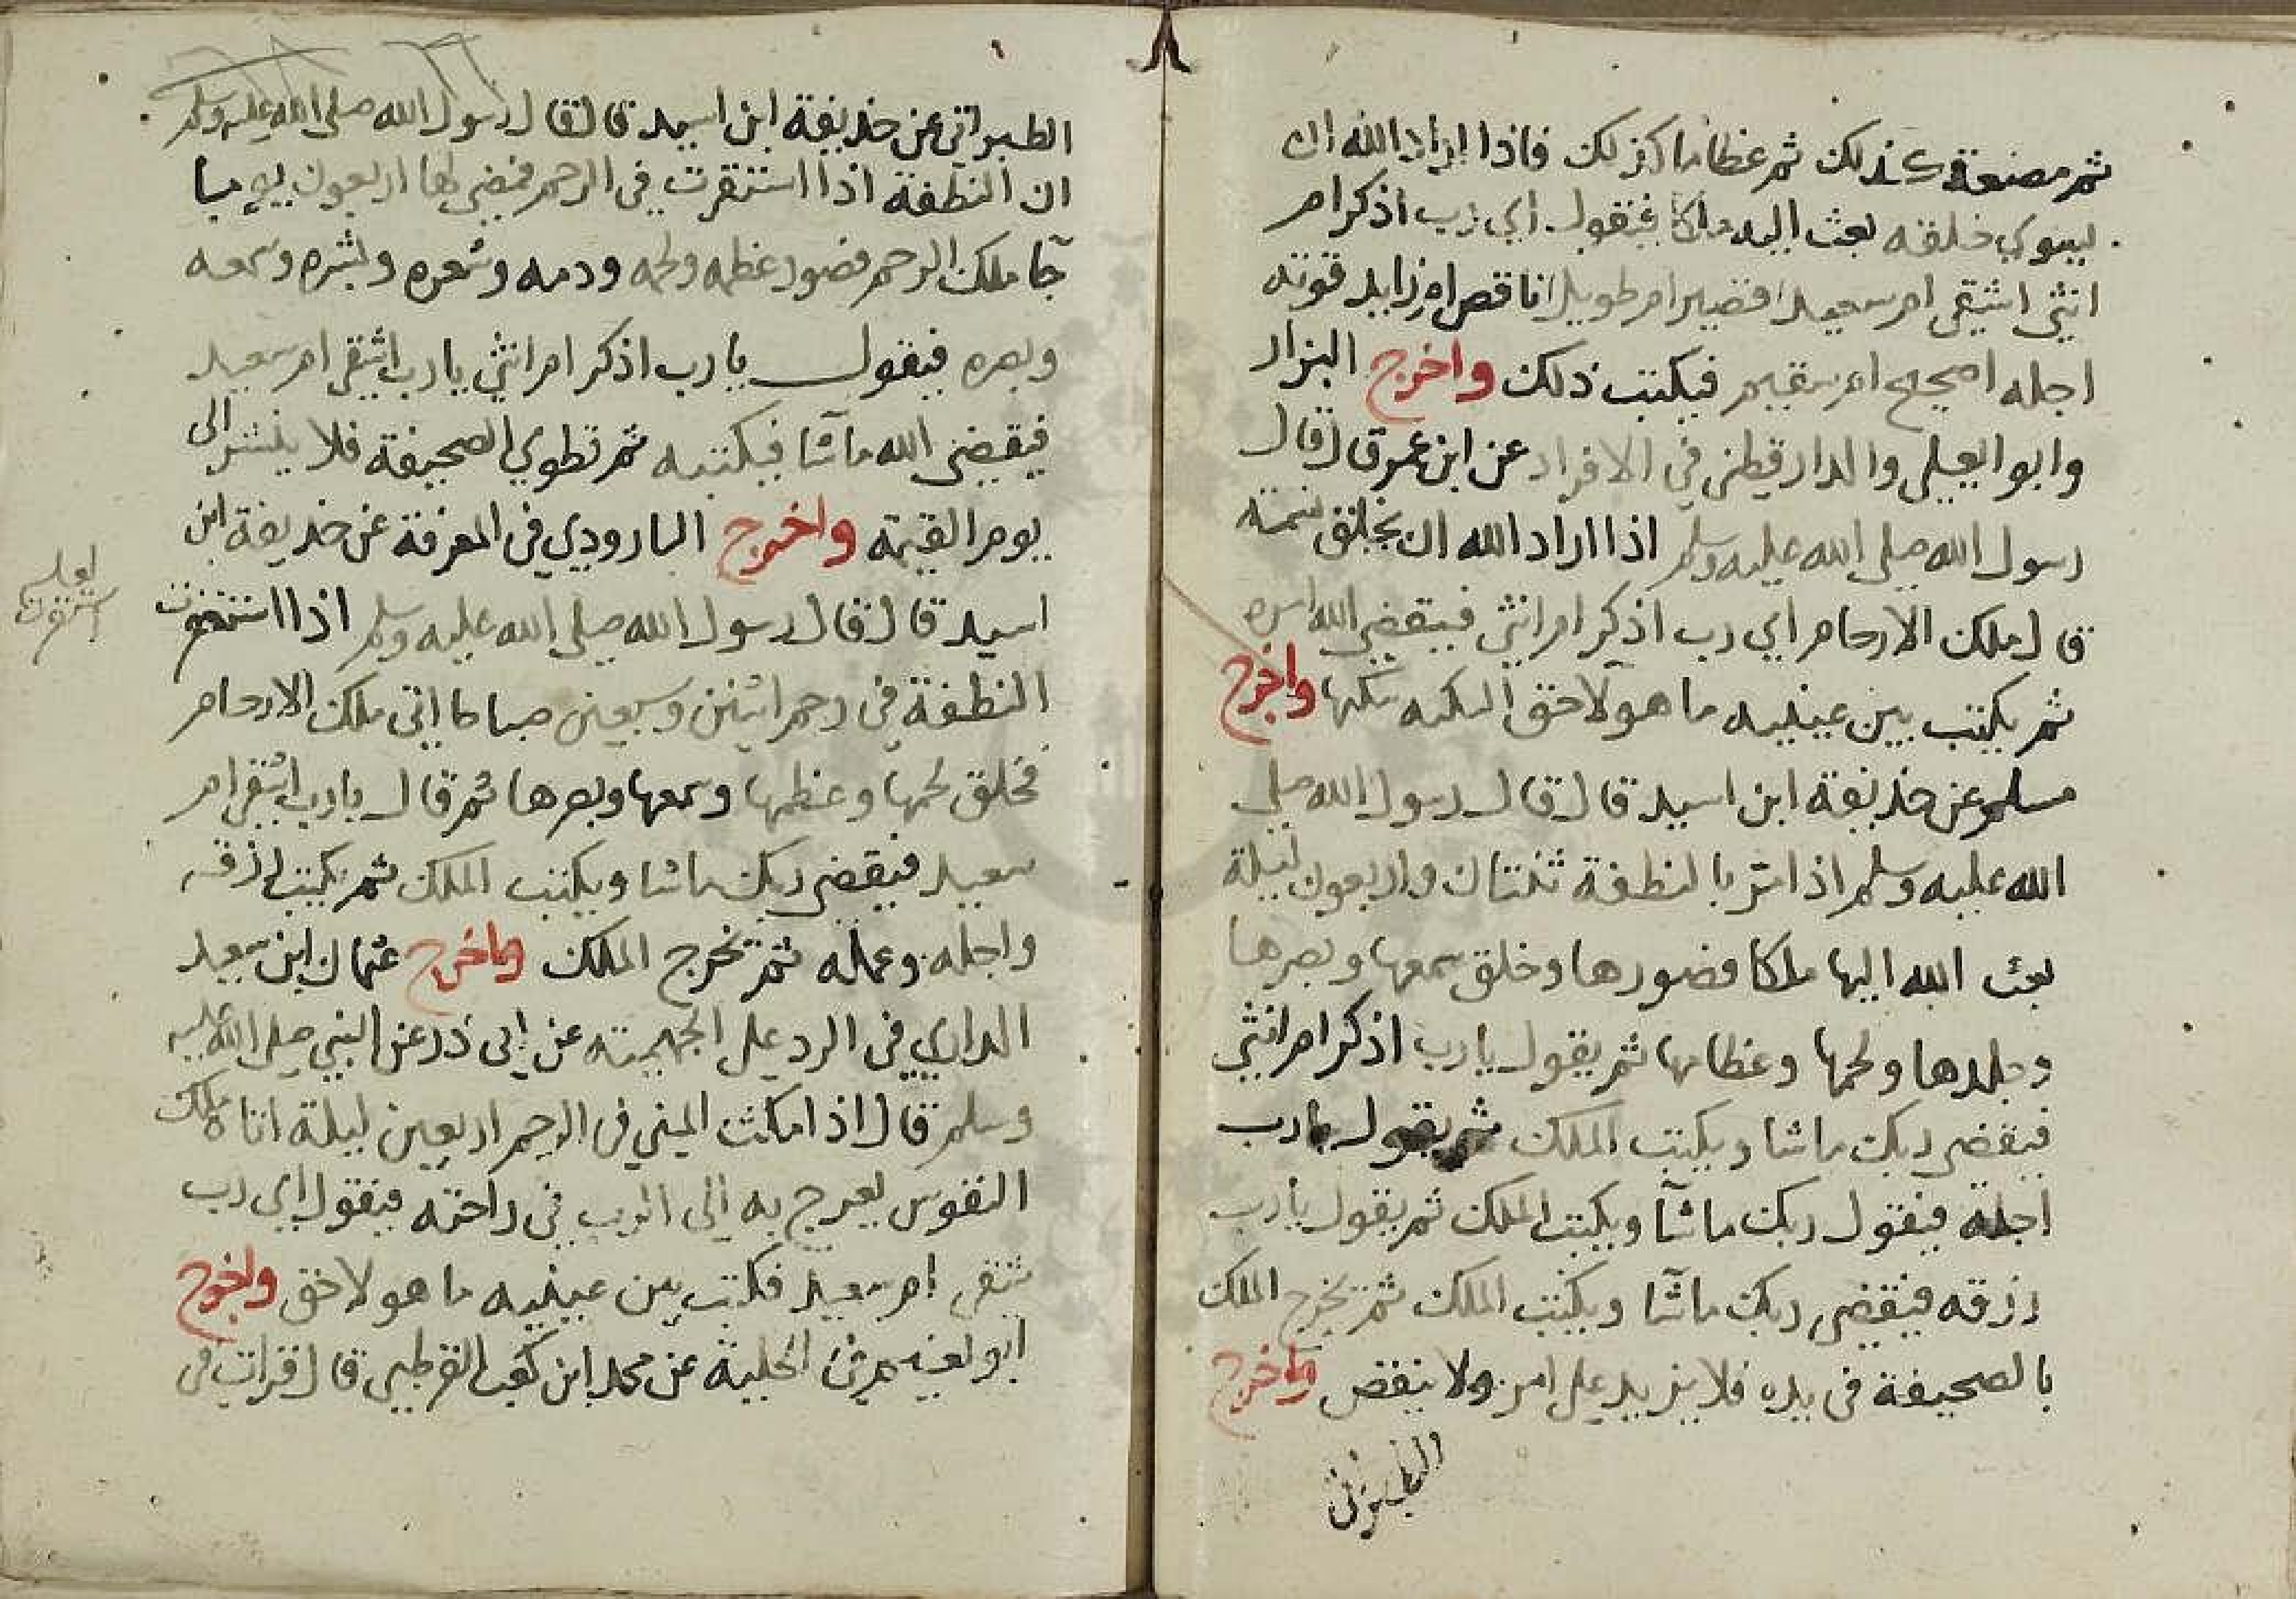 ثم مضغة كذلك ثم عظاما كذلك فاذا اراد الله ان
يسوي خلقه بعث اليه ملكا فيقول اي رب اذكر ام
انثى اشقي ام سعيد اقصير ام طويل اناقص ام زايد قوته
اجله اصحيح ام سقيم فيكتب ذلك واخرج البزار
وابو ايعلى والدارقطني في الافراد عن ابن عمر قال قال
رسول الله صلى الله عليه وسلم اذا اراد الله ان يخلق نسمة
قال ملك الارحام اي رب اذكر ام انثى فيقضي الله امره
ثم يكتب بين عينيه ما هو لاحق النكبه ينكبها واخرج
مسلم عن حذيفة ابن اسيد قال قال رسول الله صلى
الله عليه وسلم اذا مر بالنطفة ثنتان واربعون ليلة
بعث الله اليها ملكا فصورها وخلق سمعها وبصرها
وجلدها ولحمها وعظامها ثم يقول يا رب اذكر ام انثى
فيقضي ربك ماشا ويكتب الملك ثم يقول يارب
اجلة فيقول ربك ماشآ ويكتب الملك ثم يقول يارب
رزقه فيقضي ربك ماشآ ويكتب الملك ثم يخرج الملك
بالصحيفة في يده فلا يزيد على امر ولا ينقص واخرج
الطبراني
الطبراني عن حذيفة ابن اسيد قال قال رسول الله صلى الله عليه وسلم
ان النطفة اذا استقرت في الرحم فمضى لها اربعون يوما
جآ ملك الرحم فصور عظمه ولحمه ودمه وشعره وبشره وسمعه
وبصره فيقول يا رب اذكر ام انثى يا رب اشقي ام سعيد
فيقضي الله ماشآ فيكتبه ثم تطوي الصحيفة فلا ينشر الى
يوم القيمة واخرج الباروودي في المعرفة عن حذيفة ابن
اسيد قال قال رسول الله صلى الله عليه وسلم اذا استقرت
لعله
استقرت
النطفة في رحم اثنين وسبعين صباحا اتى ملك الارحام
فخلق لحمها وعظمها وسمعها وبصرها ثم قال يا رب اشقي ام
سعيد فيقضي ربك ماشا ويكتب الملك ثم يكتب رزقه
واجله وعمله ثم يخرج الملك واخرج عثمان ابن سعيد
الدارمي في الرد على الجهمية عن ابي ذر عن النبي صلى الله عليه
وسلم قال اذا مكث المني في الرحم اربعين ليلة اتاه ملك
النفوس يعرج به الى الرب في راحته فيقول اي رب
شقي ام سعيد فكتب بين عينيه ما هو لاحق واخرج
ابو نعيم في الحلية عن محمد ابن كعب القرظي قال قرات في